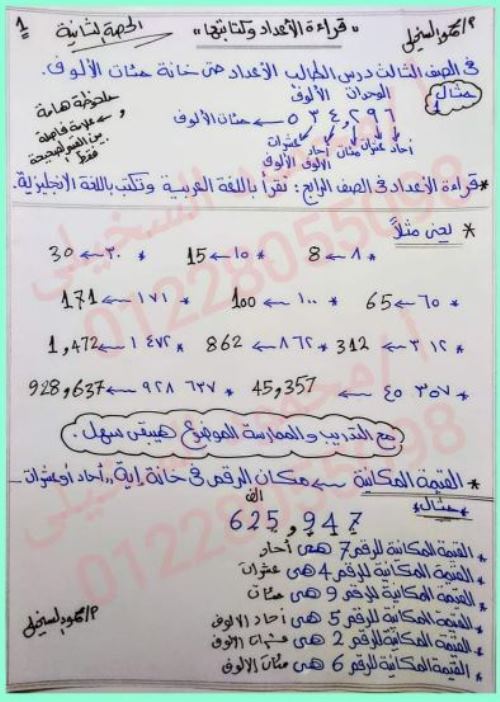 ١ الحصة الثانية "قراءة الأعداد وكتابتها" م/محمود السخيلي
فى الصف الثالث درس الطالب الأعداد حتى خانة مئات الألوف.
مثال ١
الوحدات الألوف
٥٣٤,٢٩٦ ← مئات الألوف
آحاد عشرات مئات آحاد الألوف عشرات الألوف
ملحوظة هامة ← علامة فاصلة بين القسم الصحيحة فقط
* قراءة الأعداد فى الصف الرابع: تقرأ باللغة العربية وتكتب باللغة الانجليزية.
* يعنى مثلاً
* ٨ ← 8 * ١٥ ← 15 * ٣٠ ← 30
* ٦٥ ← 65 * ١٠٠ ← 100 * ١٧١ ← 171
* ٣١٢ ← 312 * ٨٦٢ ← 862 * ١٤٧٢ ← 1,472
* ٤٥ ٣٥٧ ← 45,357 * ٩٢٨ ٦٣٧ ← 928,637
مع التدريب والممارسة الموضوع هيبقى سهل.
* القيمة المكانية ← مكان الرقم فى خانة إية "آحاد أو عشرات ...
* مثال *
الف
625,947
* القيمة المكانية للرقم 7 هى آحاد
* القيمة المكانية للرقم 4 هى عشرات
* القيمة المكانية للرقم 9 هى مئات
* القيمة المكانية للرقم 5 هى آحاد الالوف
* القيمة المكانية للرقم 2 هى عشرات الالوف
* القيمة المكانية للرقم 6 هى مئات الالوف
م/محمود السخيلي
أ/محمود السخيلي
01228055098
أ/محمود السخيلي
01228055098